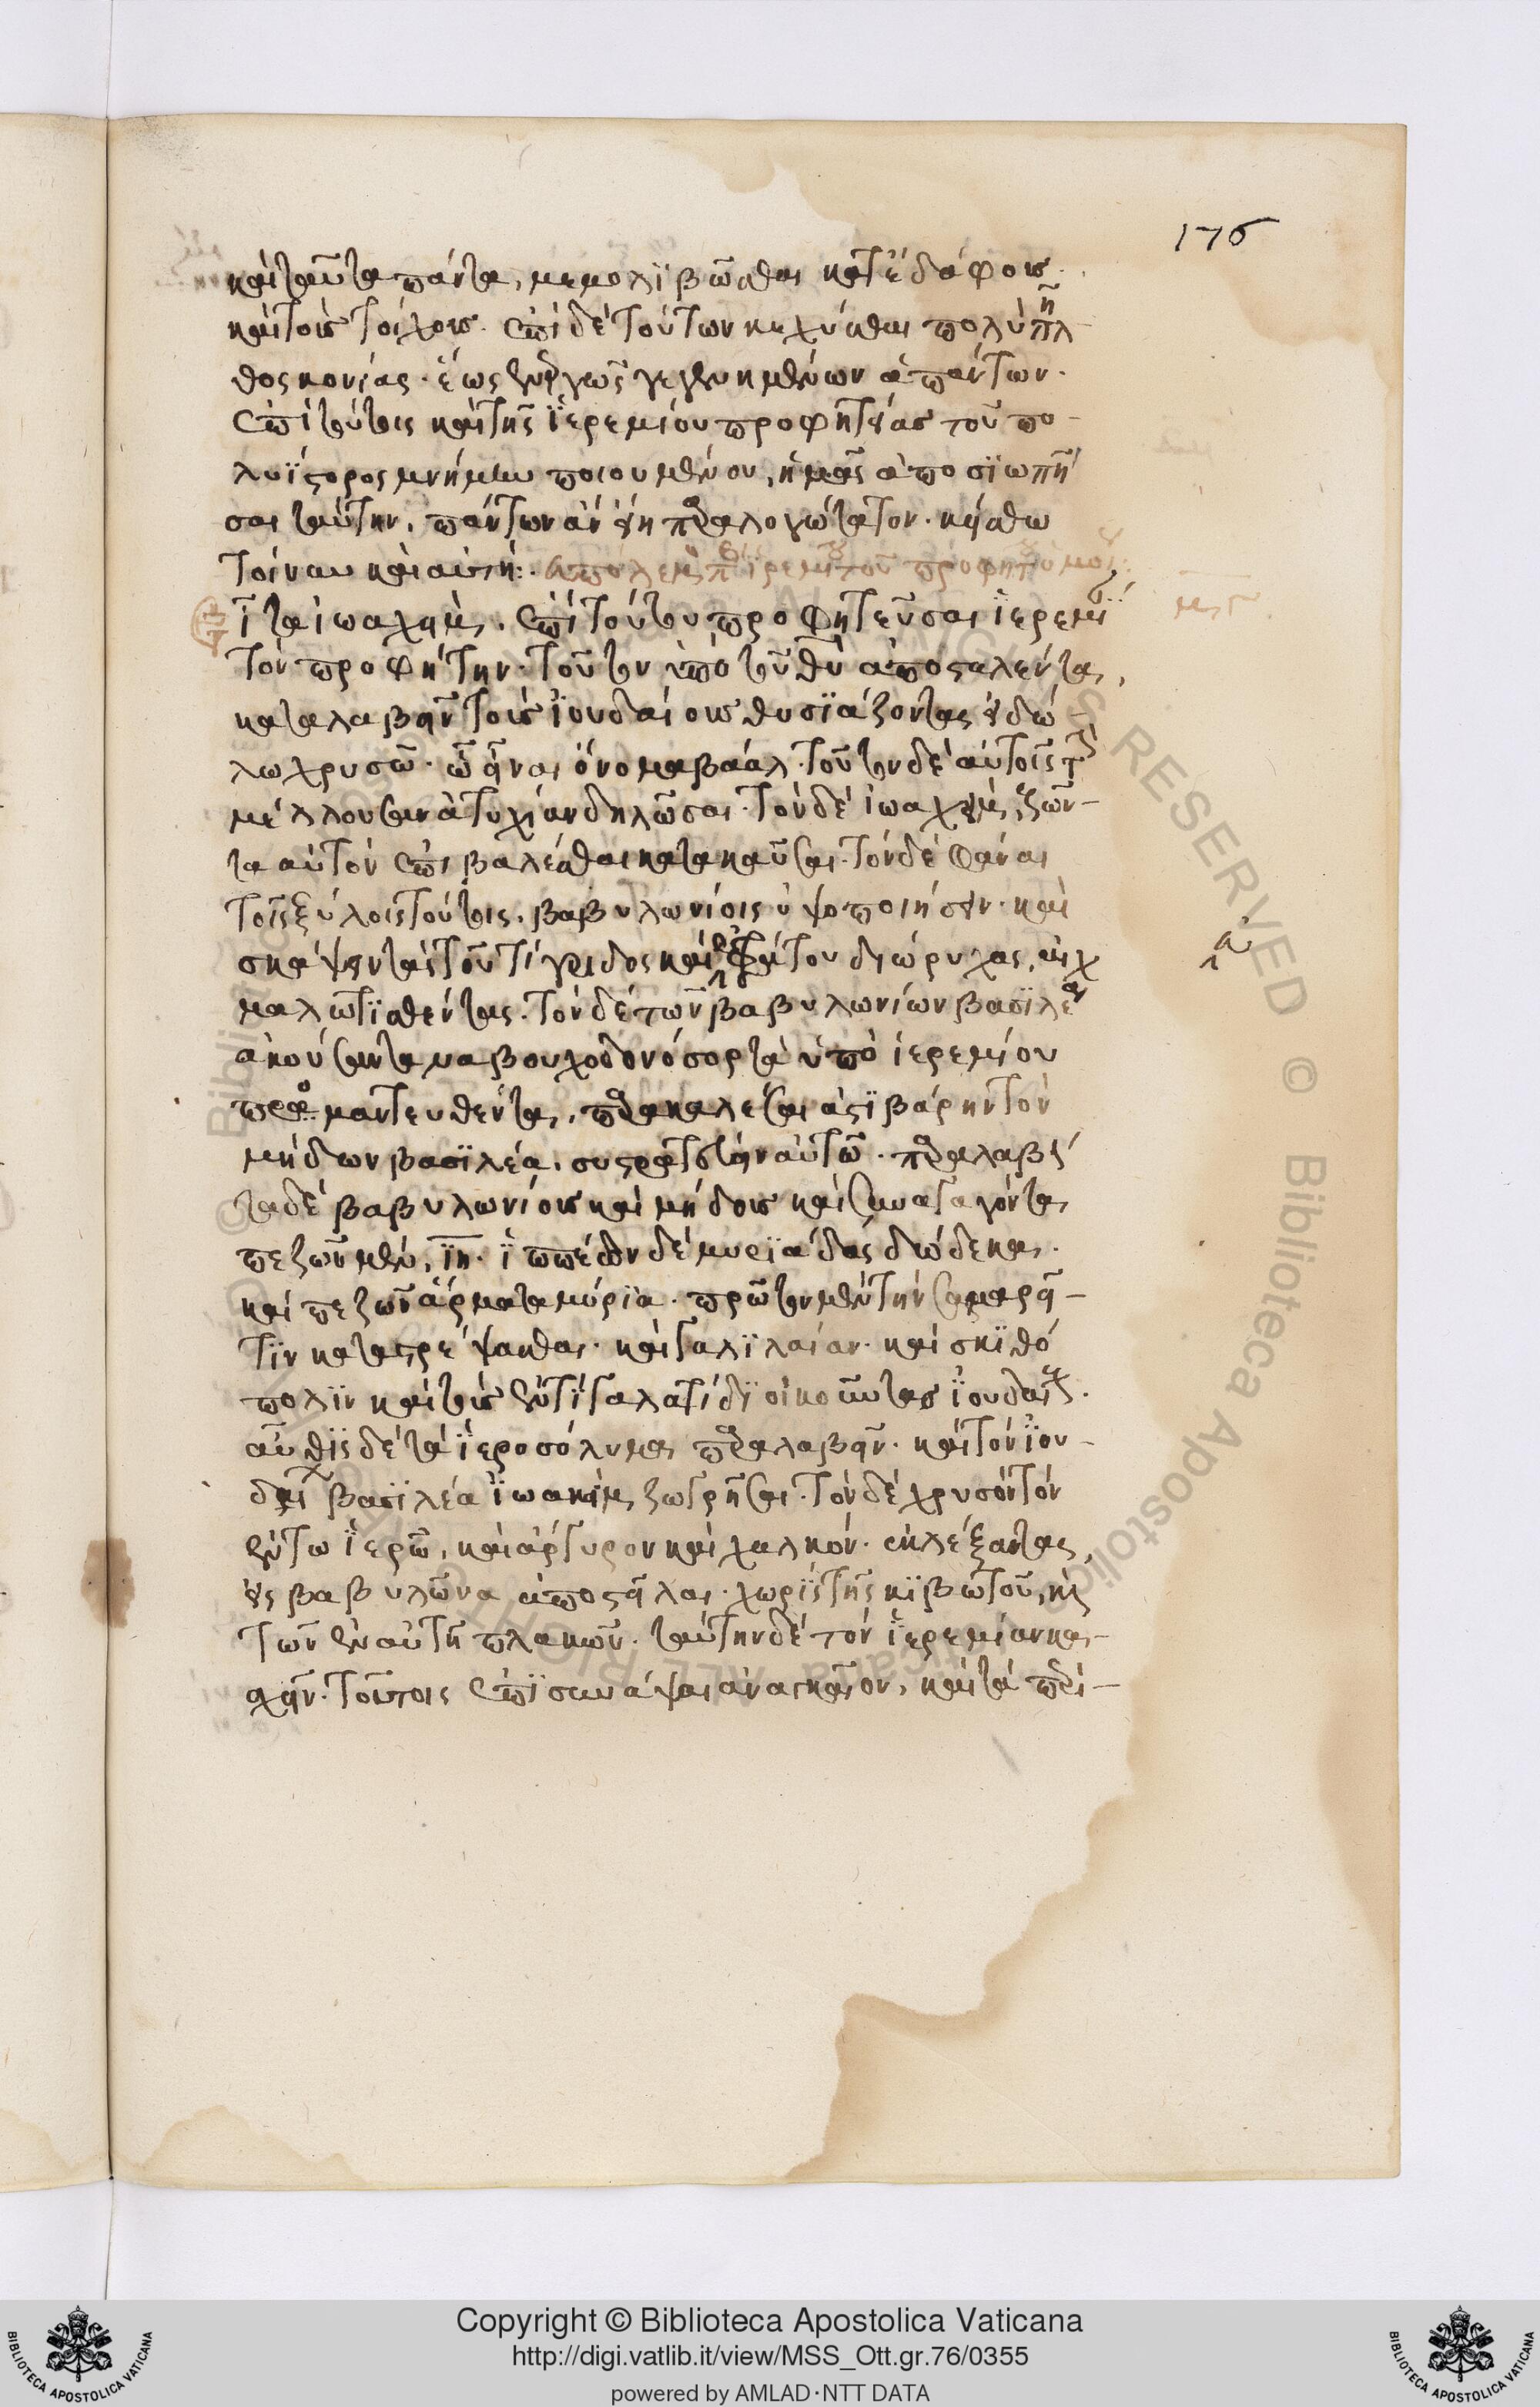 176
καὶ ταῦτα πάντα, μεμολϊβῶσθαι κατ' ἐδάφους
καὶ τοὺς τοίχους. ἐπὶ δὲ τούτων κεχύσθαι πολὺ πλῆ
θος κονίας. ἕως ἐνεργῶς γεγενημένων ἁπάντων.
ἐπὶ τούτοις καὶ τῆς ϊερεμίου προφητείας τοῦ πο-
λυΐστορος μνήμην ποιουμένου, ἡμᾶς ἀποσϊωπῆ
σαι ταύτην, πάντων ἂν εἴη παραλογώτατον. κείσθω
τοίνυν καὶ αὐτή:
ϊτα ἰωαχεὶμ. ἐπὶ τούτου προφητεῦσαι ϊερεμί
τὸν προφήτην. τοῦτον ὑπὸ τοῦ θυ ἀποσταλέντα,
καταλαβεῖν τοὺς ϊουδαίους θυσϊάζοντας εἰδώ-
λω χρυσῶ. ὧ εἶναι ὄνομα βάαλ. τοῦτον δὲ αὐτοῖς τ
μέλλουσαν ἀτυχίαν δηλῶσαι. τὸν δὲ ἰωαχεὶμ, ζῶν-
τα αὐτὸν ἐπιβαλέσθαι κατακαῦσαι. τὸν δὲ φάναι
τοῖς ξύλοις τούτοις, βαβυλωνίοις ὀψοποιήσειν. καὶ
σκάψειν τὰς τοῦ τίγριδος καὶ εὐφράτου διώρυχας, αἰχ
μαλωτϊσθέντας. τὸν δὲ τῶν βαβυλωνίων βασϊλέα
ἀκούσαντα ναβουχοδονόσορ τὰ ὑπὸ ἱερεμίου
προμαντευθέντα, παρακαλέσαι ἀστϊβάρην τὸν
μήδων βασϊλέα, συστρατεύειν αὐτῶ. παραλαβόν
τα δὲ βαβυλωνίους καὶ μήδους καὶ συναγαγόντα
πεζῶν μὲν, ϊη. ϊππέων δὲ μυρϊάδας δώδεκα,
καὶ πεζῶν ἅρματα μύρϊα. πρῶτον μὲν τὴν σαμαρεῖ-
τϊν καταστρέψασθαι. καὶ γαλϊλαίαν. καὶ σκϊθό
πολϊν καὶ τοὺς ἐν τῆ γαλατίδϊ οἰκοῦντας ϊουδαίους.
αὖθϊς δὲ τὰ ϊεροσόλυμα παραλαβεῖν. καὶ τὸν ϊου-
δαί βασϊλέα ϊωακεὶμ ζωγρῆσαι. τὸν δὲ χρυσὸν τὸν
ἐν τῶ ϊερῶ, καὶ ἄργυρον καὶ χαλκόν. ἐκλέξαντας,
εἰς βαβυλῶνα ἀποστεῖλαι. χωρϊς τῆς κϊβωτοῦ, καὶ
τῶν ἐν αὐτῆ πλακῶν. ταύτην δὲ τὸν ϊερεμίαν κα-
σχεῖν. τούτοις ἐπϊσυνάψαι ἀναγκαῖον, καὶ τὰ περὶ-
Copyright © Biblioteca Apostolica Vaticana
http://digi.vatlib.it/view/MSS_Ott.gr.76/0355
powered by AMLAD·NTT DATA